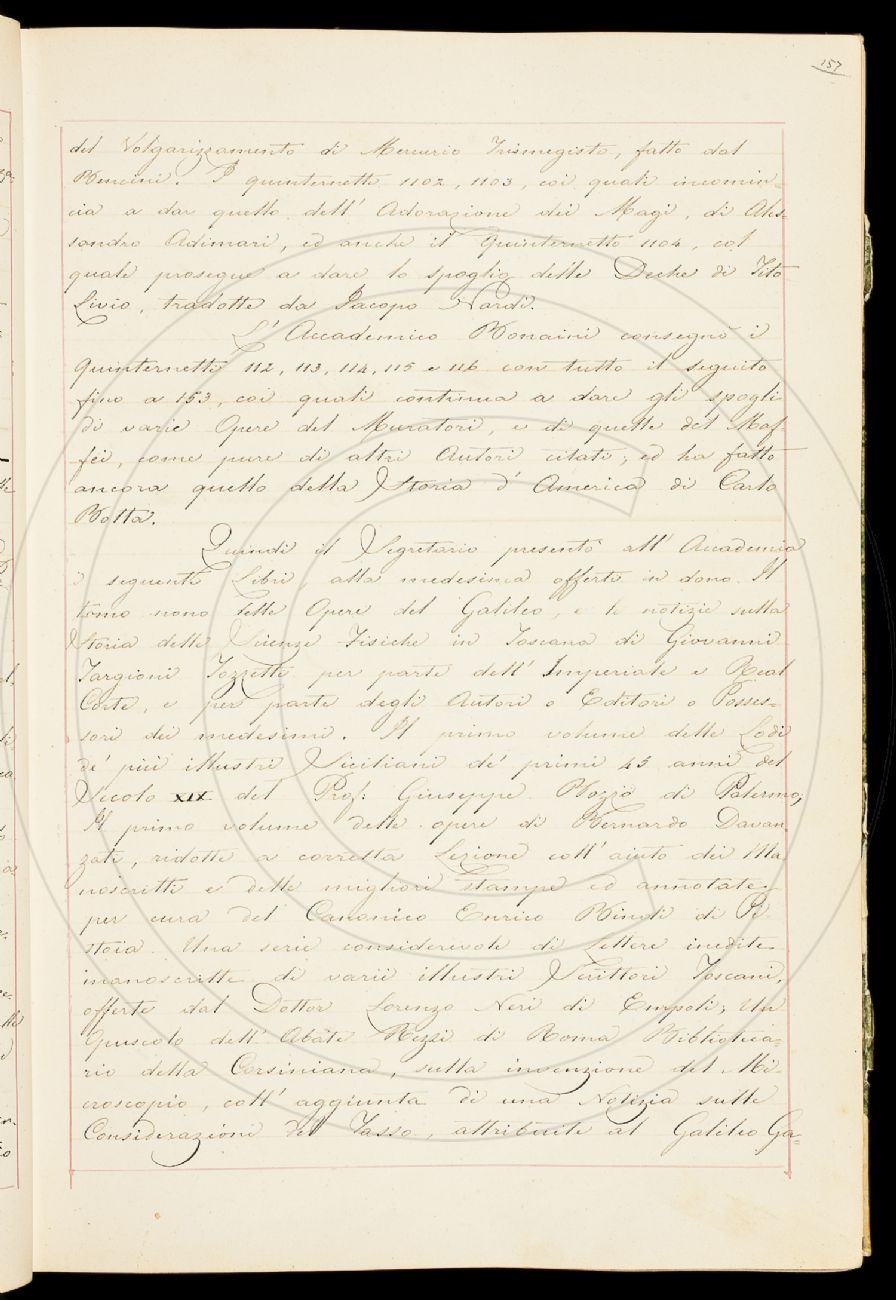 157
del Volgarizzamento di Mercurio Trismegisto, fatto dal
Bencini. I quinternetti 1102, 1103, coi quali incomin=
cia a dar quello dell' Adorazione dei Magi, di Ales=
sandro Adimari, ed anche il Quinternetto 1104, col
quale prosegue a dare lo spoglio delle Deche di Tito
Livio, tradotte da Jacopo Nardi.
L' Accademico Bonaini consegnò i
Quinternetti 112, 113, 114, 115 e 116 con tutto il seguito
fino a 153, coi quali continua a dare gli spogli
di varie Opere del Muratori, e di quelle del Maf=
fei, come pure di altri Autori citati; ed ha fatto
ancora quello della Storia d' America di Carlo
Botta.
Quindi il Segretario presentò all' Accademia
i seguenti Libri, alla medesima offerti in dono. Il
tomo nono delle Opere del Galileo, e le notizie sulla
Storia delle Scienze Fisiche in Toscana di Giovanni
Targioni Tozzetti per parte dell' Imperiale e Real
Corte, e per parte degli Autori o Editori o Posses=
sori dei medesimi. Il primo volume delle Lodi
de' più illustri Siciliani de' primi 45 anni del
Secolo XIX del Prof: Giuseppe Bozzo di Palermo;
Il primo volume delle opere di Bernardo Davan=
zati, ridotte a corretta Lezione coll' aiuto dei Ma
noscritti e delle migliori stampe ed annotate
per cura del Canonico Enrico Bindi di Pi=
stoia. Una serie considerevole di Lettere inedite
manoscritte di varii illustri Scrittori Toscani,
offerte dal Dottor Lorenzo Neri di Empoli; Un
Opuscolo dell' Abate Rezzi di Roma Biblioteca=
rio della Corsiniana, sulla invenzione del Mi=
croscopio, coll' aggiunta di una Notizia sulle
Considerazioni del Tasso, attribuite al Galileo Ga=